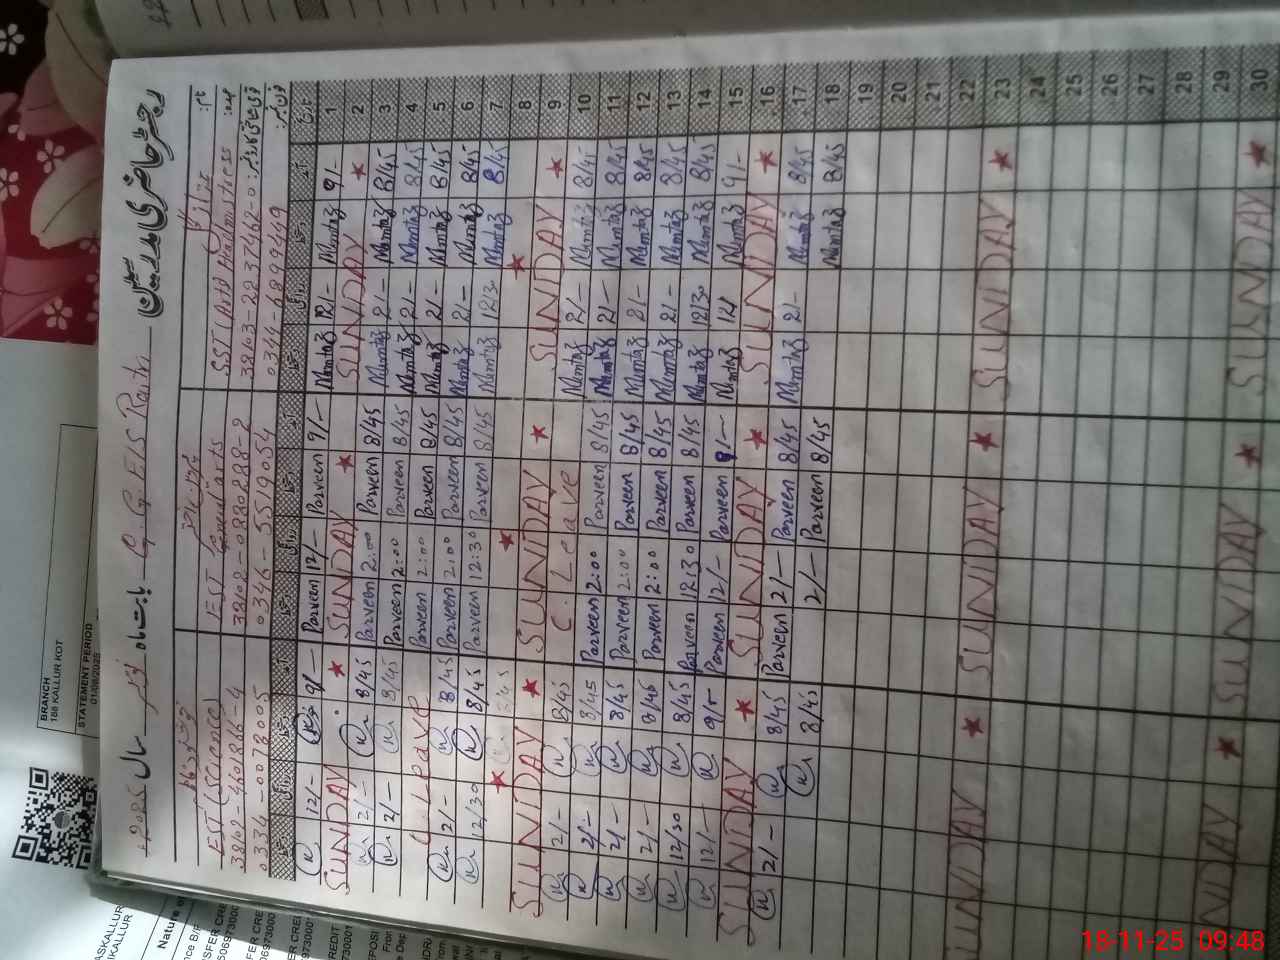 رجسٹر حاضری معلمین G.G.E/S بابت ماہ سال 2025ء
نام:
عہدہ: SST (Arts) Headmistress
قومی شناختی کارڈ نمبر: 38103-2237462-0
فون نمبر: 0344-6899449
EST General arts
38102-0820288-2
0346-5519054
EST (Science)
38102-4601816-4
0334-0078005
1 9/- Mumtaz 12/- Mumtaz 9/- Parveen 12/- Parveen 9/- 12/-
2 ★ SUNDAY ★ SUNDAY ★ SUNDAY
3 8/45 Mumtaz 2/- Mumtaz 8/45 Parveen 2:00 Parveen 8/45 2/-
4 8/45 Mumtaz 2/- Mumtaz 8/45 Parveen 2:00 Parveen 8/45 2/-
5 8/45 Mumtaz 2/- Mumtaz 8/45 Parveen 2:00 Parveen C. Leave
6 8/45 Mumtaz 2/- Mumtaz 8/45 Parveen 2:00 Parveen 8/45 2/-
7 8/45 Mumtaz 12/30 Mumtaz 8/45 Parveen 12:30 Parveen 8/45 12/30
8 ★ ★ 8/45 ★
9 ★ SUNDAY ★ SUNDAY ★ SUNDAY
10 8/45 Mumtaz 2/- Mumtaz C. Leave 8/45 2/-
11 8/45 Mumtaz 2/- Mumtaz 8/45 Parveen 2:00 Parveen 8/45 2/-
12 8/45 Mumtaz 2/- Mumtaz 8/45 Parveen 2:00 Parveen 8/45 2/-
13 8/45 Mumtaz 2/- Mumtaz 8/45 Parveen 2:00 Parveen 8/45 2/-
14 8/45 Mumtaz 12/30 Mumtaz 8/45 Parveen 12:30 Parveen 8/45 12/30
15 9/- Mumtaz 12/ Mumtaz 9/- Parveen 12/- Parveen 12/-
16 ★ SUNDAY ★ SUNDAY ★ SUNDAY
17 8/45 Mumtaz 2/- Mumtaz 8/45 Parveen 2/- Parveen 8/45 2/-
18 8/45 Mumtaz 8/45 Parveen 2/- 8/45
19
20
21
22
23 ★ SUNDAY ★ SUNDAY ★ SUNDAY
24
25
26
27
28
29
30 ★ SUNDAY ★ SUNDAY ★ SUNDAY
BRANCH
188 KALLUR KOT
STATEMENT PERIOD
18-11-25 09:48